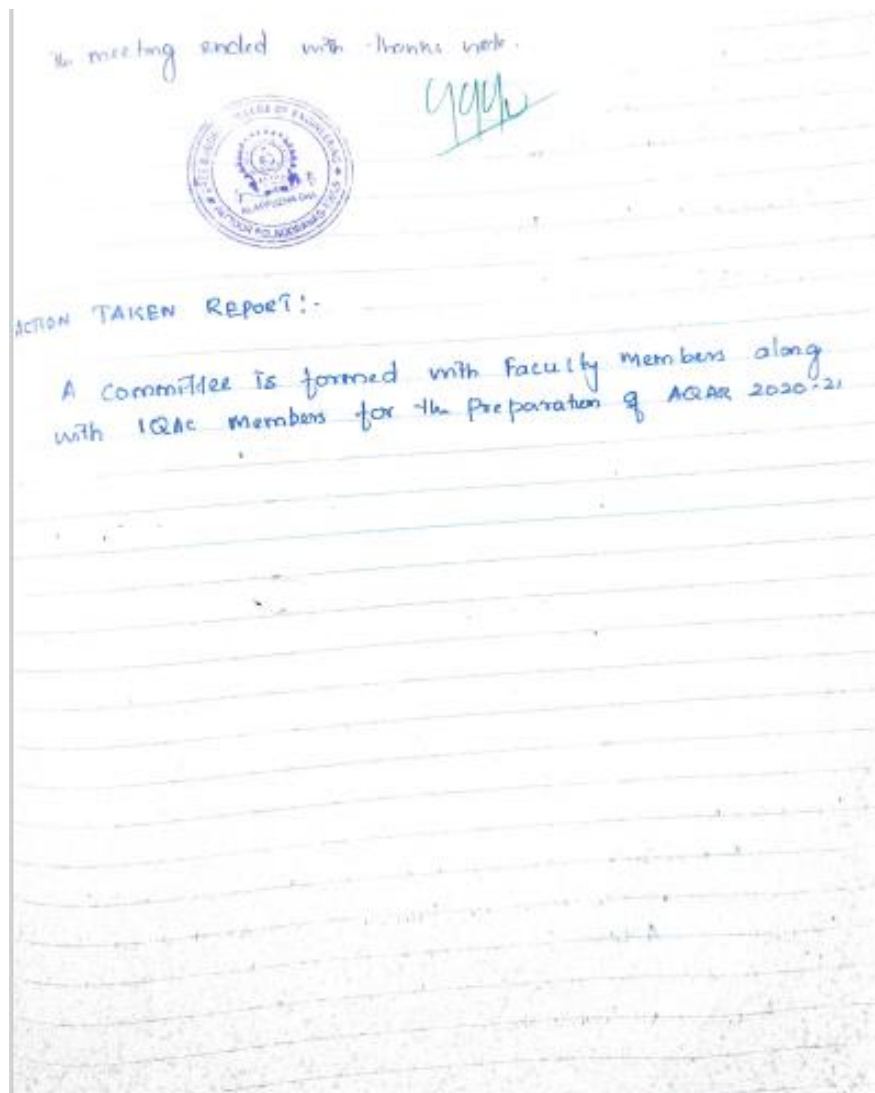 The meeting ended with thanks note.
COLLEGE OF ENGINEERING
ACTION TAKEN REPORT:-
A committee is formed with Faculty members along
with IQAC members for the Preparation of AQAR 2020-21